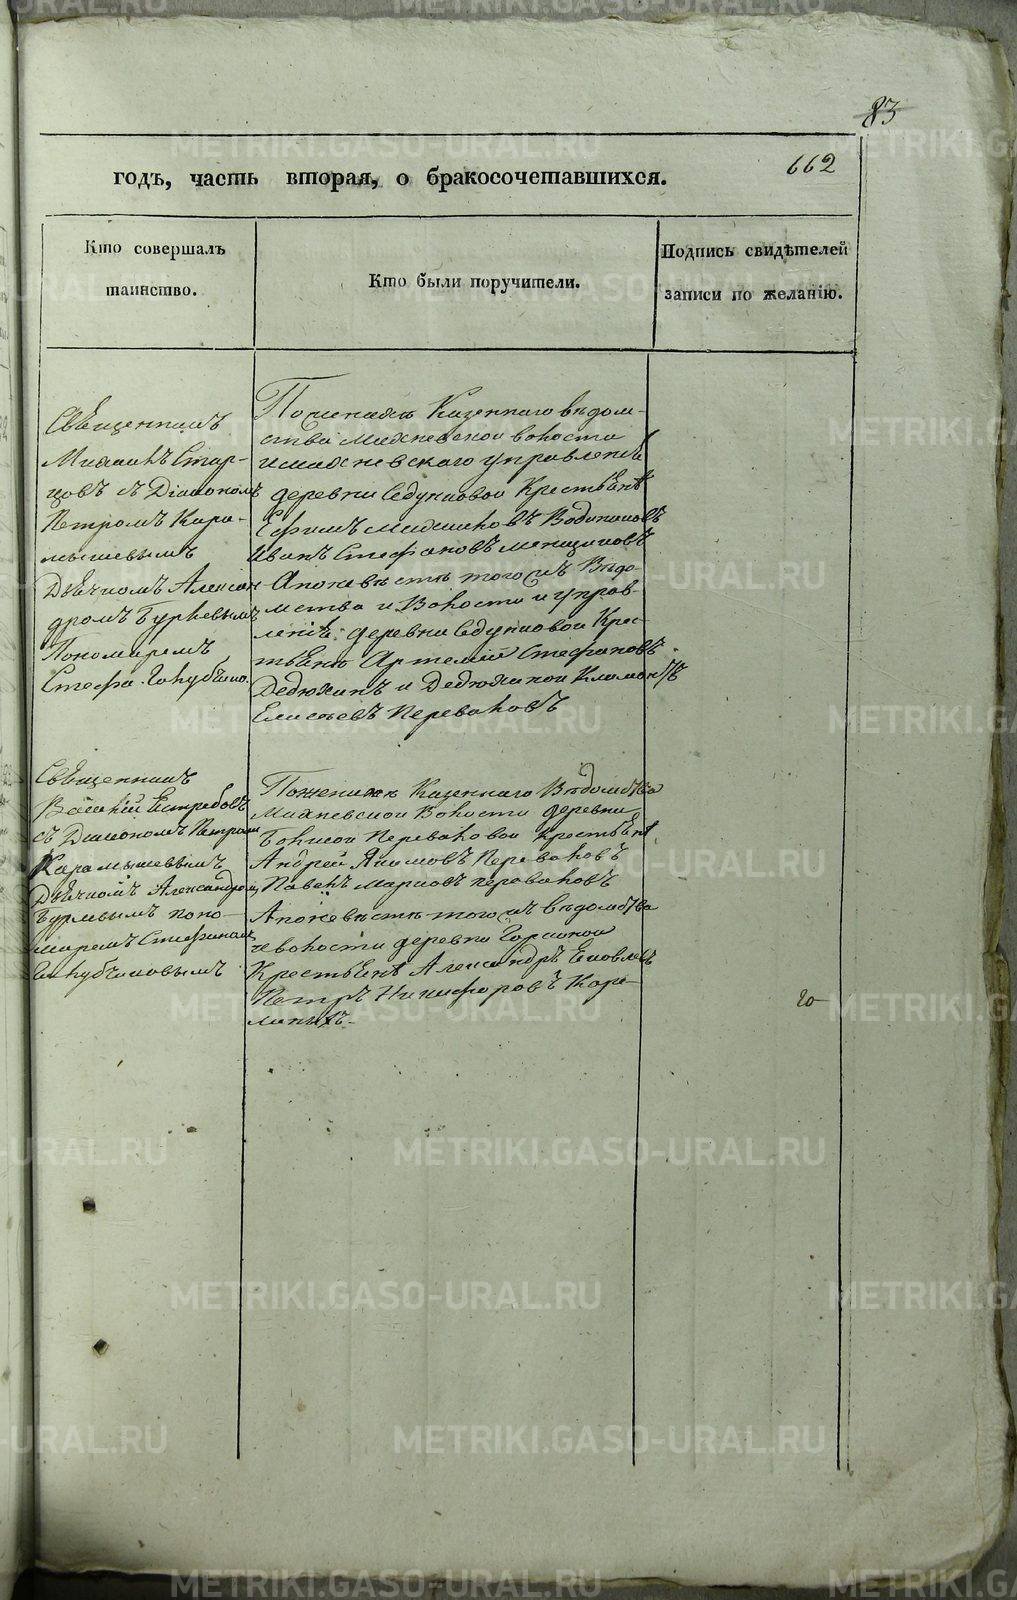 83
662
годъ, часть вторая, о бракосочетавшихся.
Кто совершалъ
таинство.
Кто были поручители.
Подпись свидѣтелей
записи по желанію.
Священникъ
Михаилъ Стар-
цовъ съ Діакономъ
Петромъ Кара-
мышевымъ
Дьячкомъ Алексан
дромъ Бурлевымъ
Пономаремъ
Стефа. Голубчико.
По женихѣ Казеннаго вѣдом-
ства Михневской волости
и михневскаго управленiя
деревни Седунковой Крестьянѣ
Ефимъ
Иванъ Стефановъ
А по невѣстѣ того жъ Вѣдо-
мства и Волости и управ-
ленiя деревни Седунковой Крес-
тьянѣ Артемiй Стефановъ
Дедюхинъ и Дедюхиной
Елисѣевъ Переваловъ
Священникъ
Василiй Ястребовъ
съ Діакономъ Петромъ
Карамышевымъ
Дьячкомъ Александромъ
Бурлевымъ поно-
маремъ Стефаномъ
Голубчиковымъ
По женихѣ Казеннаго Вѣдомства
Михневской Волости деревни
Переваловой крестьянѣ
Андрей Якимовъ Переваловъ
Павелъ Марковъ переваловъ
А по невѣстѣ того жъ вѣдомства
и волости деревни Горскиной
Крестьянѣ Александръ Яковлевъ
Петръ Никифоровъ Каре-
линыхъ.